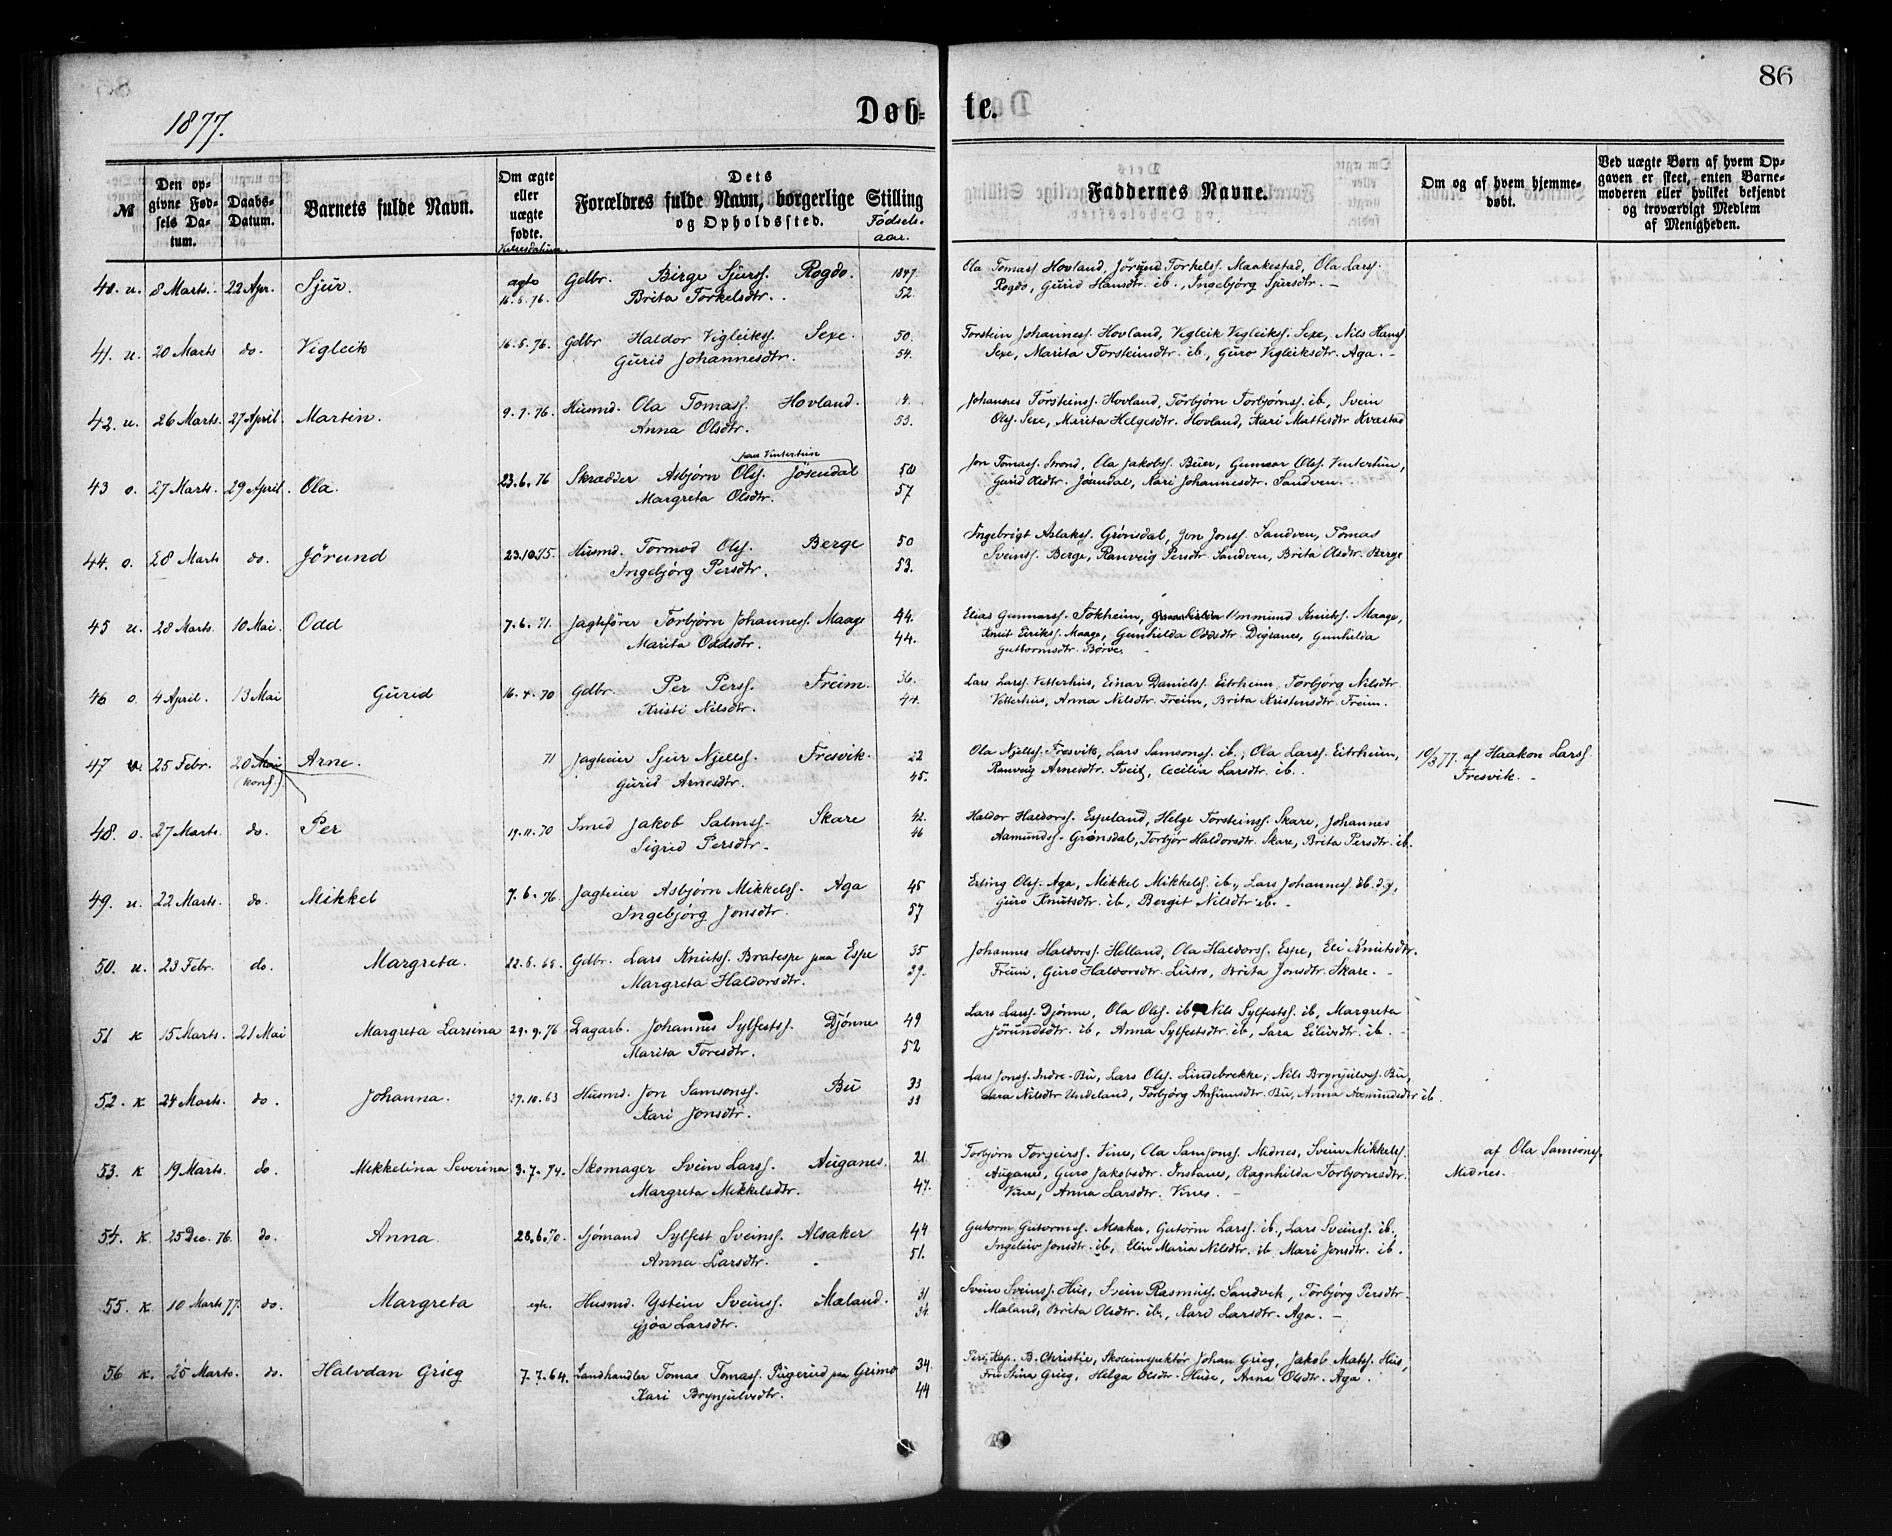 86
1877.
Døb-
te.
№
Den op-
givne Fød-
sels Da-
tum.
Daabs-
Datum.
Barnets fulde Navn.
Om ægte
eller
uægte
fødte.
Vielsesdatum.
Dets
Forældres fulde Navn, borgerlige Stilling
og Opholdssted.
Fødsels-
aar.
Faddernes Navne.
Om og af hvem hjemme-
døbt.
Ved uægte Børn af hvem Op-
gaven er skeet, enten Barne-
moderen eller hvilket bekjendt
og troværdigt Medlem
af Menigheden.
40. u. 8 Marts. 22 Apr. Sjur. ægte Gdbr. Birge Sjurss. Rogdo. 1847.
16.6.76. Brita Torkelsdtr. 52.
Ola Tomass. Hovland, Jörund Torkels. Maakestad, Ola Larss.
Rogdo, Gurid Hansdtr. ib., Ingebjörg Sjursdtr. –
41. u. 20 Marts do. Vigleik 16.6.76. Gdbr Haldor Vigleikss. Sexe. 50.
Gurid Johannesdtr. 54.
Torstein Johanness. Hovland, Vigleik Vigleikss. Sexe, Nils Hanss.
Sexe, Marita Torsteinsdtr. ib., Guro Vigleiksdtr. Aga. –
42. u. 26 Marts. 27 April. Martin. 9.7.76. Husmd. Ola Tomass. Hovland.
Anna Olsdtr. 53.
Johannes Torsteinss. Hovland, Torbjörn Torbjörnss. ib., Svein
Olss. Sexe, Marita Helgesdtr. Hovland, Kari Mattesdtr Kvæstad
paa Vintertun
43 o. 27 Marts. 29 April. Ola. 23.6.76 Skrædder Asbjørn Olss. Jösendal 50
Margreta Olsdtr. 57
Jon Tomass. Strond, Ola Jakobss. Buer, Gunnar Olss. Vintertun,
Gurid Olsdtr. Jösendal, Kari Johannesdtr. Sandven.
44. o. 28 Marts do. Jörund 23.10.75. Husmd. Tormod Olss. Berge 50
Ingebjörg Persdtr. 53.
Ingebrigt Aslakss. Grönsdal, Jon Jonss. Sandven, Tomas
Sveinss. Berge, Ranveig Persdtr. Sandven, Brita Olsdtr. Berge
45 u. 28 Marts. 10 Mai. Odd 7.6.71. Jagtefører Torbjörn Johanness. Maage 44.
Marita Oddsdtr. 44.
Elias Gunnarss. Tokheim, Ommund Knutss. Maage,
Knut Eirikss. Maage, Gunhilda Oddsdtr. Digranes, Gunhilda
Guttormsdtr. Börve.
46 o. 4 April. 13 Mai Gurid 16.4.70 Gdbr. Per Perss. Freim. 36.
Kristi Nilsdtr. 44.
Lars Larss. Vetterhus, Einar Daniels. Eitrheim, Torbjörg Nilsdtr.
Vetterhus, Anna Nilsdtr. Freim, Brita Kristensdtr. Freim.
47 25 Febr. 20 Mai Arne. 71 Jagteeier Sjur Njells. Fresvik. 22
(konf.) Gurid Arnesdtr. 45.
Ola Njells. Fresvik, Lars Samsons. ib.; Ola Larss. Eitrheim,
Ranveig Arnesdtr. Tveit, Cecilia Larsdtr. ib.
10/3 77. af Haakon Larss.
Fresvik. –
48. o. 27 Marts. do. Per 19.11.70 Smed Jakob Salmss. Skare 42.
Sigrid Persdtr. 46
Haldor Haldorss. Espeland, Helge Torsteinss. Skare, Johannes
Aamundss. Grönsdal, Torbjör Haldorsdtr. Skare, Brita Persdtr. ib.
49. u. 22 Marts. do. Mikkel 7.6.76. Jagteeier Asbjørn Mikkelss. Aga 45
Ingebjörg Jonsdtr. 57
Erling Olss. Aga, Mikkel Mikkels. ib., Lars Johanness. ib.
Guro Knutsdtr. ib, Bergit Nilsdtr. ib. –
50. u. 23 Febr. do. Margreta. 22.6.65. Gdbr. Lars Knutss. Bratespe paa Espe 35
Margreta Haldorsdtr. 29.
Johannes Haldorss. Helland, Ola Haldorss. Espe, Eli Knutsdtr.
Freim, Guro Haldorsdtr. Lutro, Brita Jonsdtr. Skare. –
51 K 15 Marts. 21 Mai Margreta Larsina 29.9.76 Dagarb. Johannes Sylfestss. Djönne 49
Marita Toresdtr. 52
Lars Larss. Djönne, Ola Olss. ib, Nils Sylfestss. ib, Margreta
Jörundsdtr. ib, Anna Sylfestsdtr. ib, Sara Eilivsdtr. ib.
52. K 24 Marts. do. Johanna. 29.10.63 Husmd. Jon Samsonss. Bu 33
Kari Jonsdtr. 33
Lars Jonss. Indre-Bu, Lars Olss. Lindebrekke, Nils Brynjulvss. Bu,
Sara Nilsdtr Undeland, Torbjörg Anfinnsdtr. Bu, Anna Aamundsdtr ib.
53. K 19 Marts. do. Mikkelina Severina 3.7.74. Skomager Svein Larss. Auganes. 21
Margreta Mikkelsdtr. 47.
Torbjörn Torgeirss. Vines, Ola Samsonss. Midnes, Svein Mikkelss.
Auganes, Guro Jakobsdtr. Instanes, Ragnhilda Torbjornsdtr.
Vines, Anna Larsdtr. Vines. –
af Ola Samsonss.
Midnes.
54. K. 25 Dec. 76. do. Anna 28.6.70. Sjømand Sylfest Sveinss. Alsaker 44
Anna Larsdtr. 51.
Gutorm Gutormss. Alsaker, Gutorm Larss. ib., Lars Sveinss. ib.
Ingeleiv Jonsdtr. ib, Elin Maria Nilsdtr. ib. Mari Jonsdtr. ib.
55. K. 10 Marts 77. do. Margreta egte. Husmd. Ystein Sveinss. Mæland. 31
Gjøa Larsdtr. 34
Svein Sveinss. Hus, Svein Rasmuss. Sandvek, Torbjörg Persdtr.
Mæland, Brita Olsdtr. ib., Kari Larsdtr. Aga. –
56 K. 25 Marts. do. Halvdan Grieg 7.7.64. Landhandler Tomas Tomass. Pügerud paa Grimo 34.
Kari Brynjulvsdtr. 44
Pers. Kap. B. Christie, Skoleinspektör Johan Grieg, Jakob Matss. Hus,
Fru Stina Grieg, Helga Olsdtr. Huse, Anna Olsdtr. Aga.